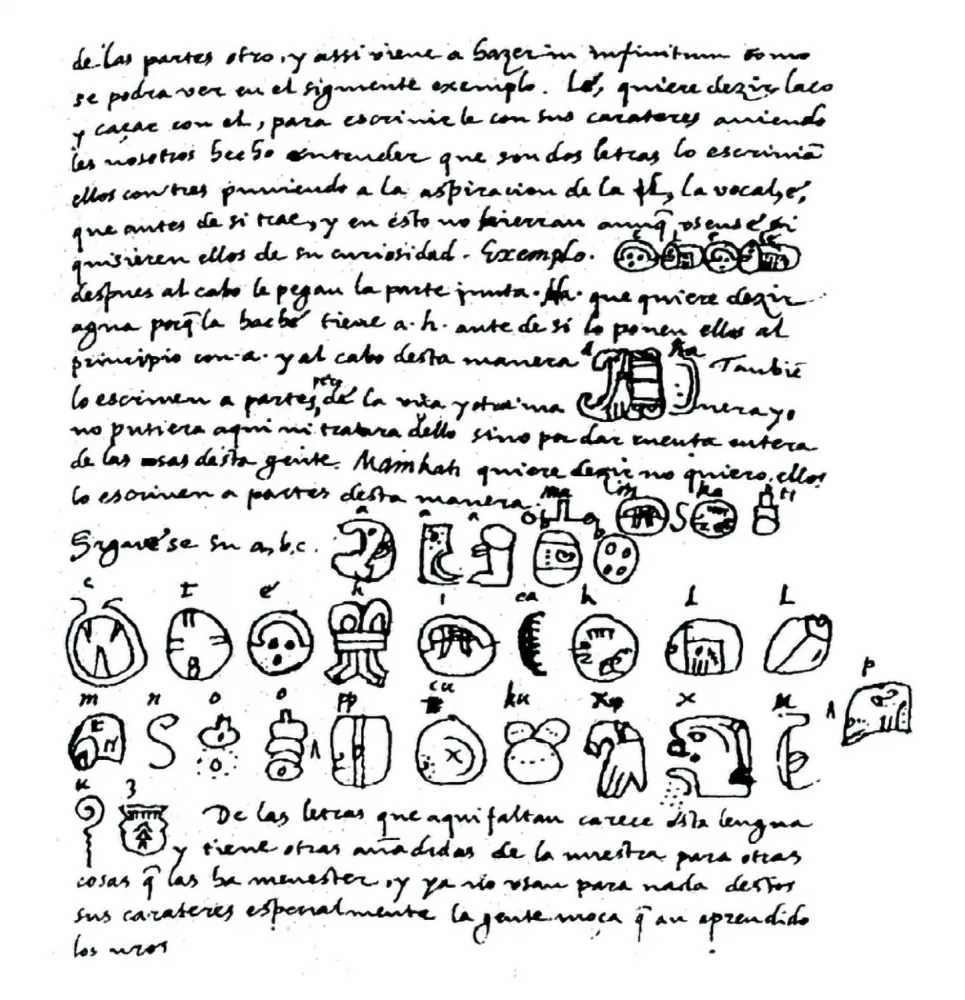 de las partes otro, y assi viene a hazer in infinitum como
se podra ver en el siguiente exemplo. Lé, quiere dezir laço
y caçar con el, para escrivirle con sus carateres aviendo
les nosotros hecho entender que son dos letras lo escrivia͂
ellos con tres puniendo a la aspiracion de la l, la vocal, é,
que antes de si trae, y en esto no hierran aunq̃ usense si
quisieren ellos de su curiosidad. Exemplo. e L e Lé
despues al cabo le pegan la parte junta. Ha. que quiere dezir
agua porq̃ la haché tiene a. h. ante de si lo ponen ellos al
principio con a. y al cabo desta manera a ha Tambiē
lo escriven a partes, pero de la una y otra ma nera yo
no pusiera aqui ni tratara dello sino por dar cuenta entera
de las cosas desta gente. Mainkati quiere dezir no quiero, ellos
lo escriven a partes desta manera. ma i n ka ti
Siguese su a, b, c. a a a b b
c t é h i ca k l l
m n o o pp cu ku x x u p
u z De las letras que aqui faltan carece esta lengua
y tiene otras añadidas de la nuestra para otras
cosas q̃ las ha menester, y ya no usan para nada destos
sus carateres especialmente la gente moça q̃ an aprendido
los nros